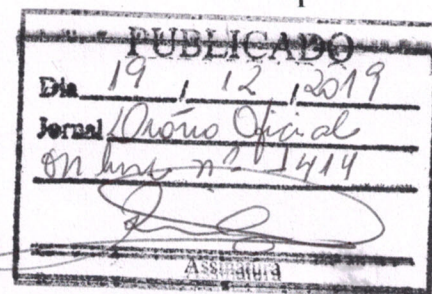 PUBLICADO
Dia 19 / 12 / 2019
Jornal Diário Oficial
on line nº 1414
Assinatura